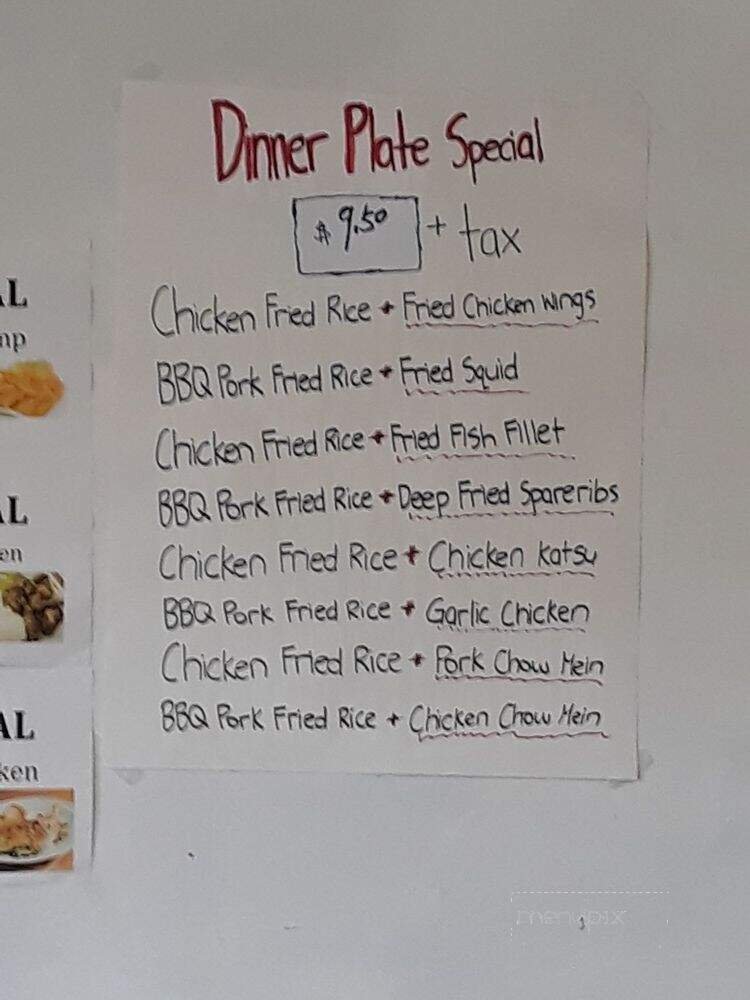 Dinner Plate Special
$ 9.50 + tax
Chicken Fried Rice + Fried Chicken Wings
BBQ Pork Fried Rice + Fried Squid
Chicken Fried Rice + Fried Fish Fillet
BBQ Pork Fried Rice + Deep Fried Spareribs
Chicken Fried Rice + Chicken Katsu
BBQ Pork Fried Rice + Garlic Chicken
Chicken Fried Rice + Pork Chow Mein
BBQ Pork Fried Rice + Chicken Chow Mein
AL
mp
AL
en
AL
ken
menupix